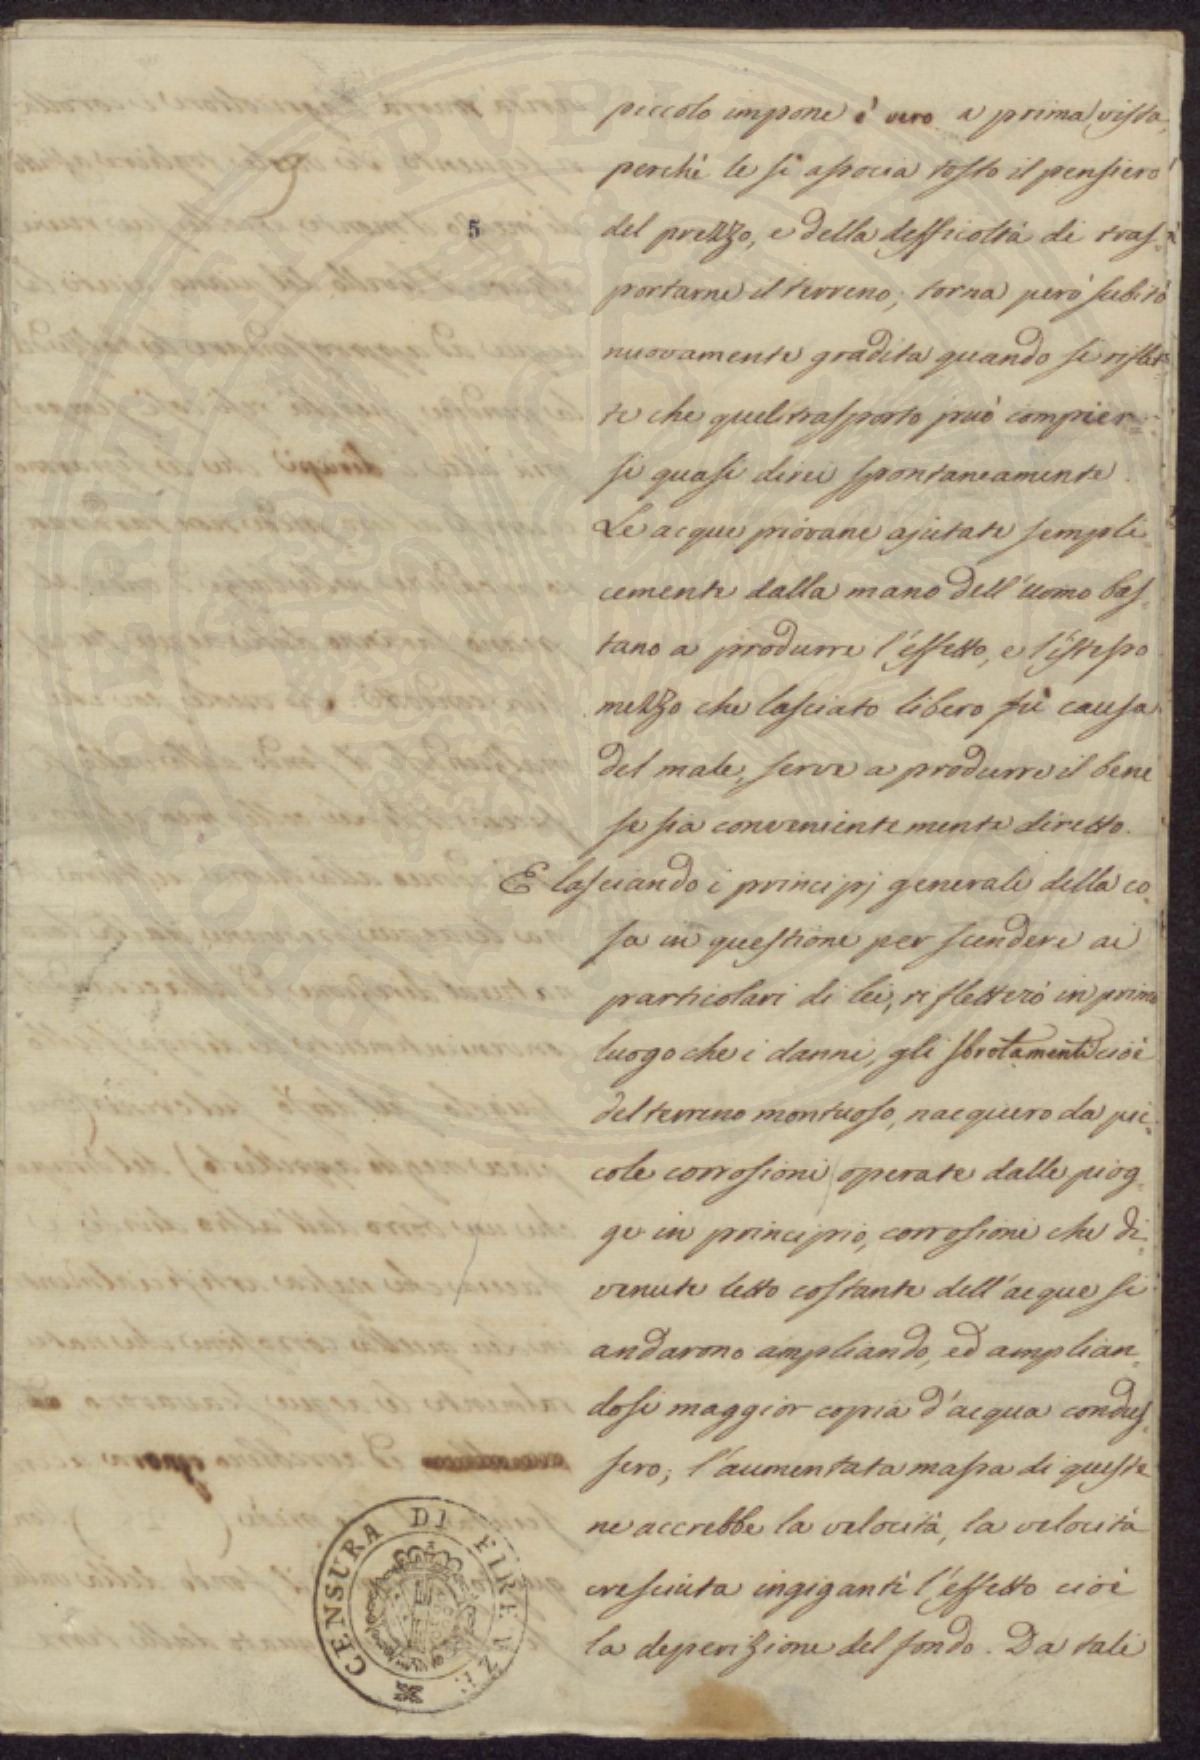 piccolo impone è vero a prima vista,
perchè le si associa tosto il pensiero
5
del prezzo, e della difficoltà di tras-
portarne il terreno; torna però subito
nuovamente gradita quando si riflet-
te che quel trasporto può compier-
si quasi direi spontaneamente.
Le acque piovane ajutate sempli-
cemente dalla mano dell'uomo bas-
tano a produrre l'effetto, e l'istesso
mezzo che lasciato libero fù causa
del male, serve a produrre il bene
se sia convenientemente diretto.
E lasciando i principj generali della co-
sa in questione per scendere ai
particolari di lei, rifletterò in primo
luogo che i danni, gli sbrotamenti cioè
del terreno montuoso, nacquero da pic-
cole corrosioni operate dalle piog-
ge in principio, corrosioni che di-
venute letto costante dell'acque si
andarono ampliando, ed amplian-
dosi maggior copia d'acqua condus-
sero; l'aumentata massa di queste
ne accrebbe la velocità, la velocità
cresciuta ingigantì l'effetto cioè
la deperizione del fondo. Da tali
CENSURA DI FIRENZE